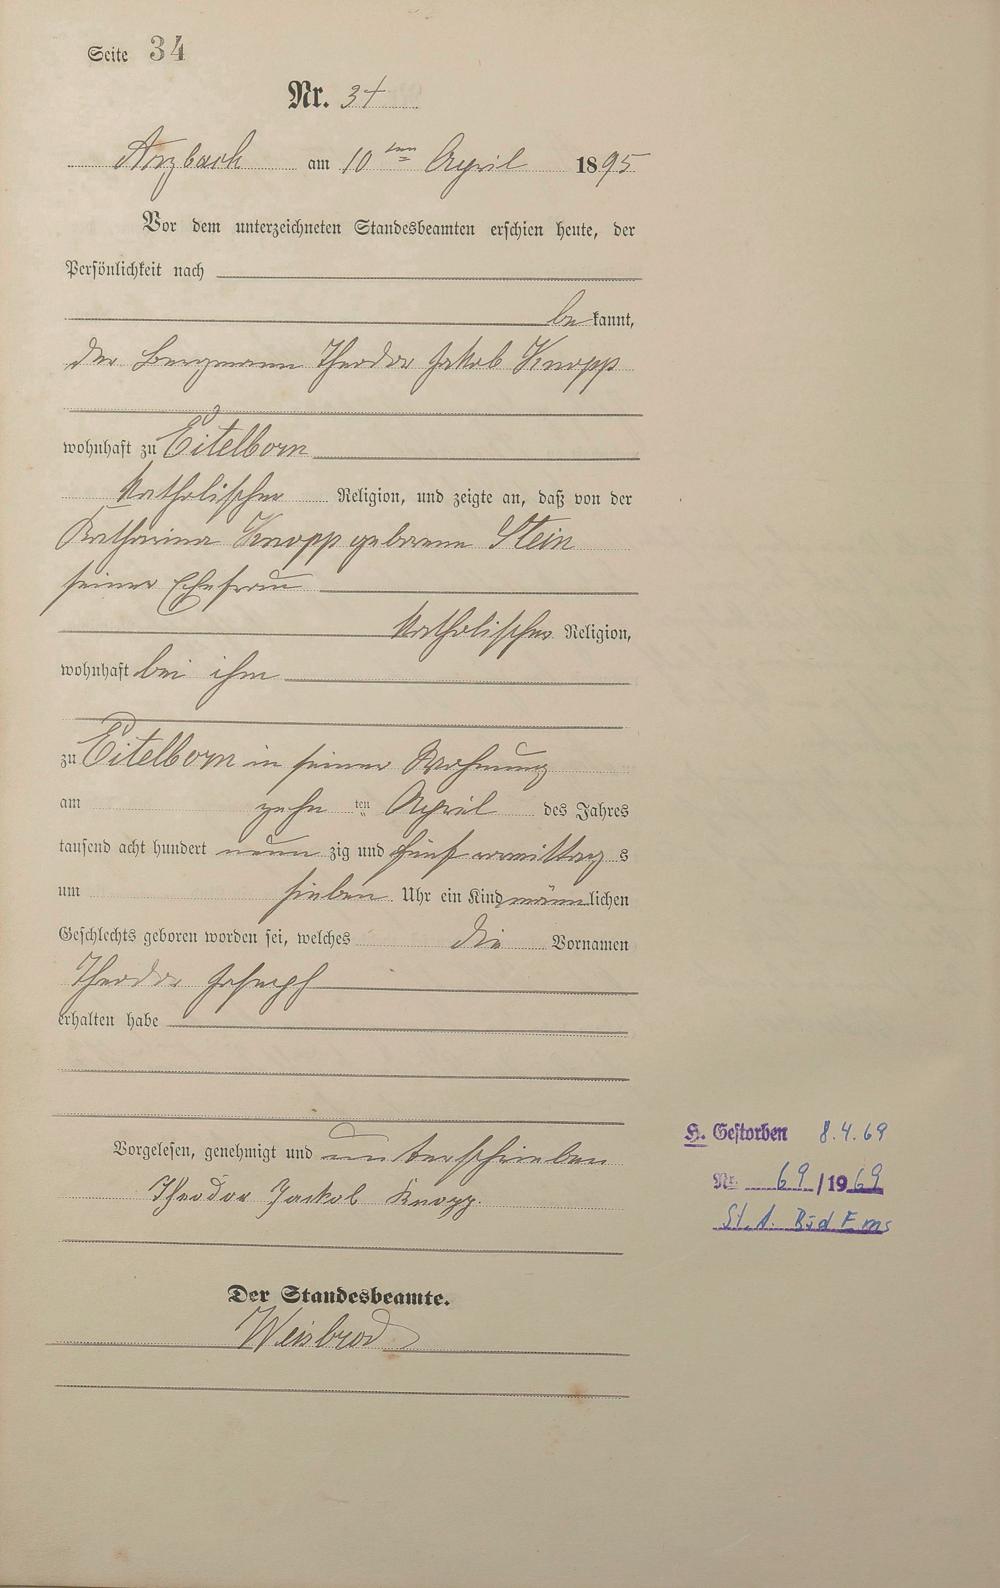 Seite 34
Nr. 34
Arzbach am 10ten April 1895
Vor dem unterzeichneten Standesbeamten erschien heute, der
Persönlichkeit nach
be kannt,
der Bergmann Theodor Jakob Knopp
wohnhaft zu Eitelborn
katholischer Religion, und zeigte an, daß von der
Katharina Knopp geborene Stein
seiner Ehefrau
katholischer Religion,
wohnhaft bei ihm
zu Eitelborn in seiner Wohnung
am zehn ten April des Jahres
tausend acht hundert neun zig und fünf vormittag s
um sieben Uhr ein Kind männ lichen
Geschlechts geboren worden sei, welches die Vornamen
Theodor Joseph
erhalten habe
Vorgelesen, genehmigt und unterschrieben
Theodor Jackob Knopp.
Der Standesbeamte.
Weisbrod
H. Gestorben 8.4.69
Nr. 69/1969
St.A. Bad Ems